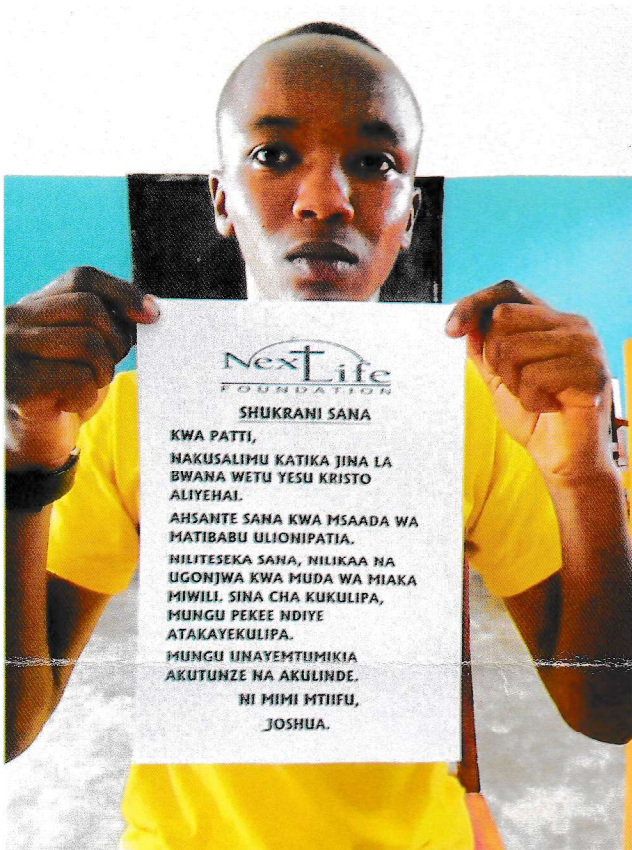 Next Life
FOUNDATION
SHUKRANI SANA
KWA PATTI,
NAKUSALIMU KATIKA JINA LA
BWANA WETU YESU KRISTO
ALIYEHAI.
AHSANTE SANA KWA MSAADA WA
MATIBABU ULIONIPATIA.
NILITESEKA SANA, NILIKAA NA
UGONJWA KWA MUDA WA MIAKA
MIWILI. SINA CHA KUKULIPA,
MUNGU PEKEE NDIYE
ATAKAYEKULIPA.
MUNGU UNAYEMTUMIKIA
AKUTUNZE NA AKULINDE.
NI MIMI MTIIFU,
JOSHUA.